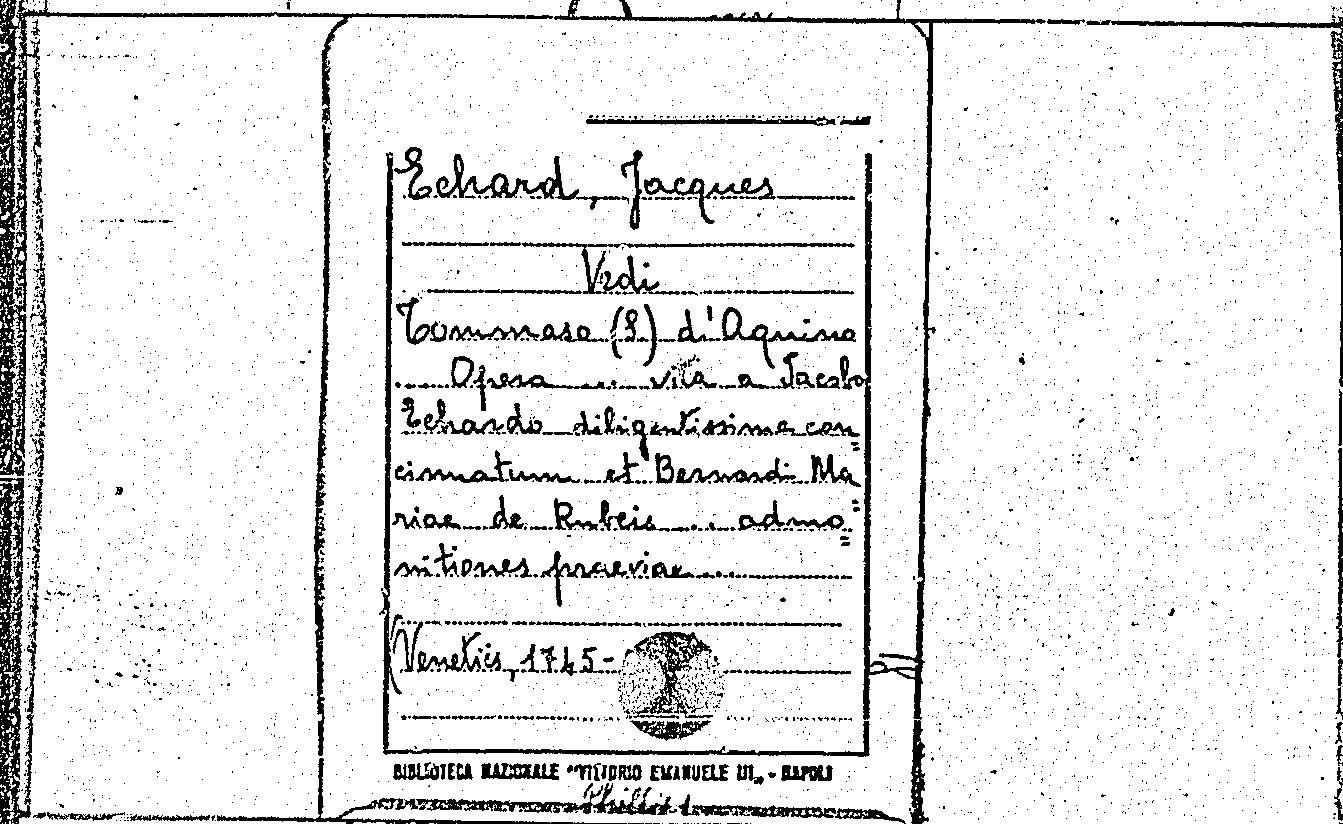 Echard, Jacques
Vedi
Tommaso (S.) d'Aquino
.... Opera ... vita a Jacobo
Echardo diligentissime con=
cinnatum et Bernardi Ma=
riae de Rubeis ... admo=
nitiones praeviae...
(Venetiis, 1745-
BIBLIOTECA NAZIONALE "VITTORIO EMANUELE III" - NAPOLI